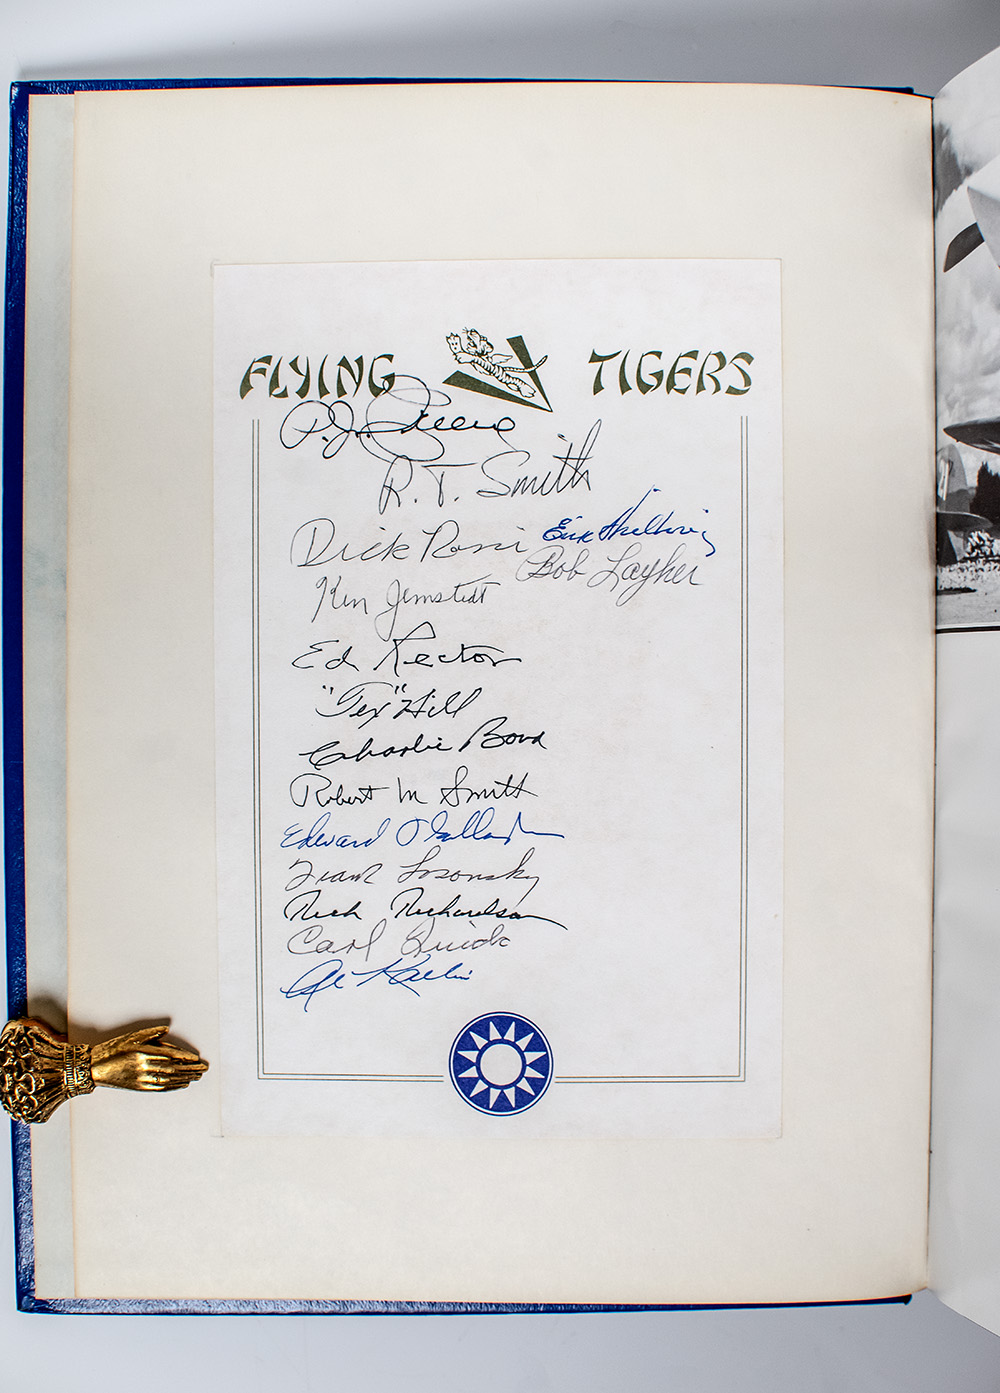 FLYING TIGERS
P.J. Greene
R. T. Smith
Dick Rossi Erik Shilling
Bob Layher
Ken Jernstedt
Ed Rector
"Tex" Hill
Charlie Bond
Robert M Smith
Edward
Frank Losonsky
Rich Richardson
Carl Quick